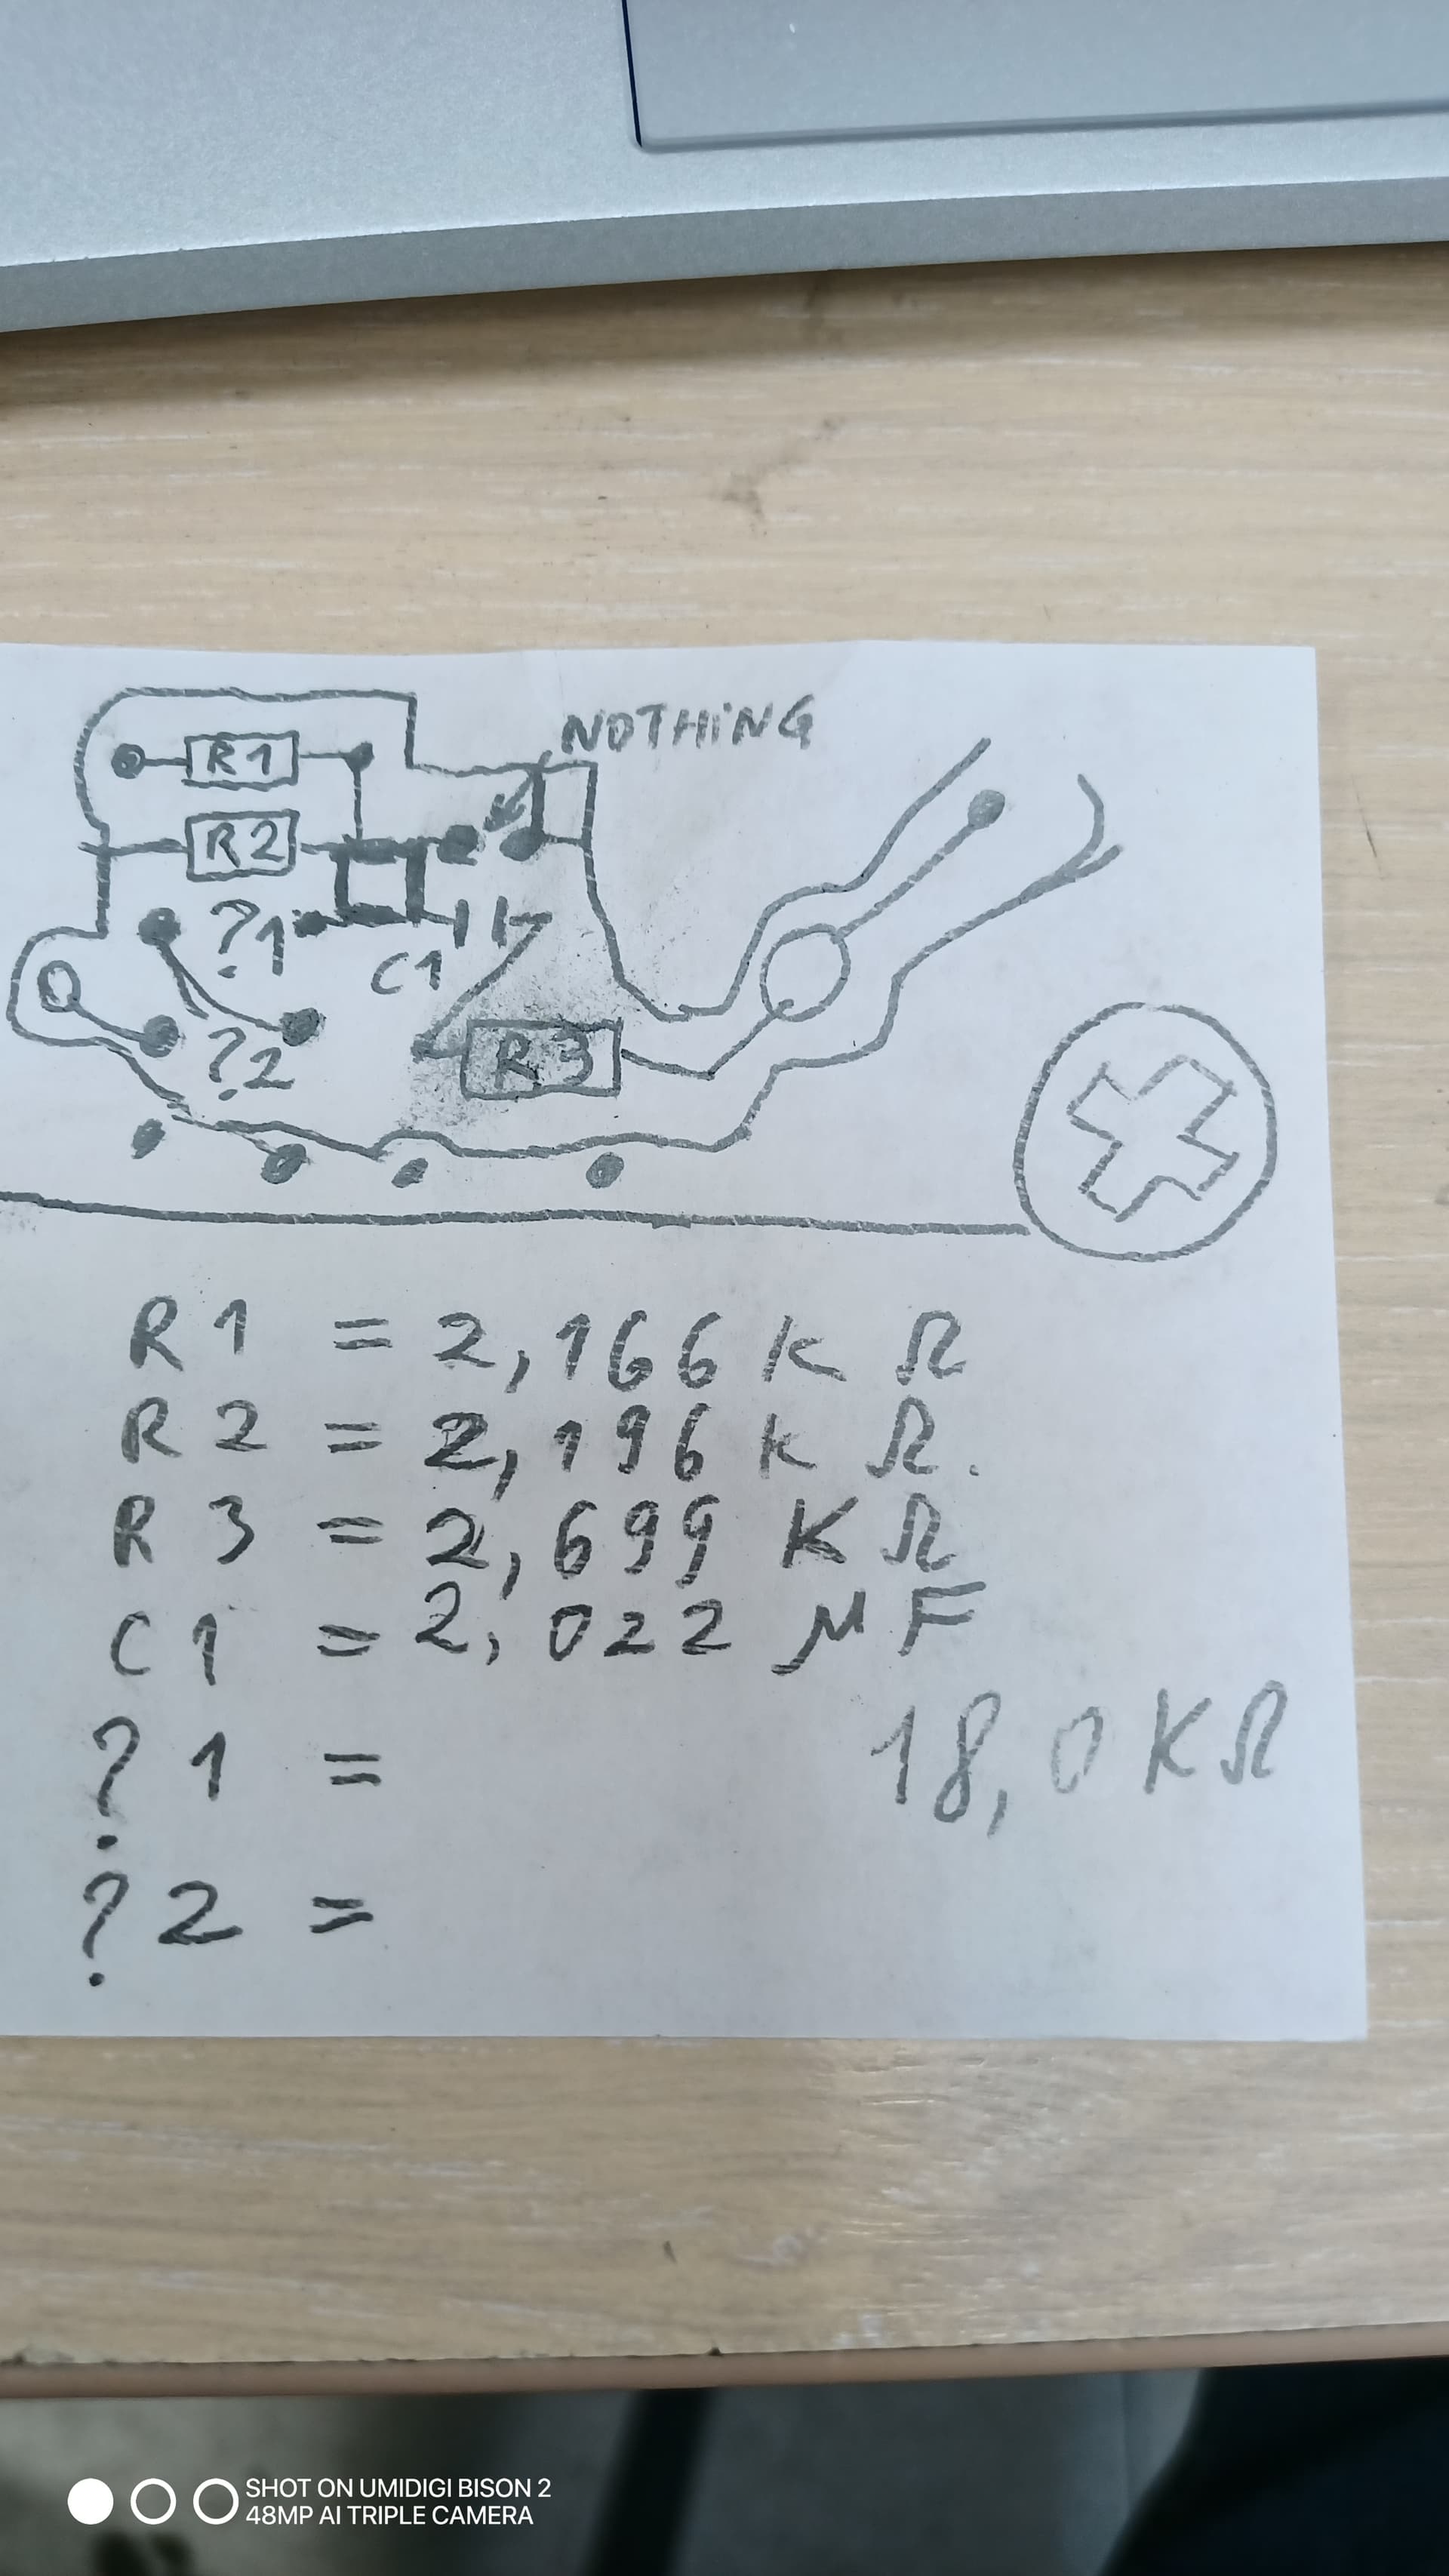 NOTHING
R1
R2
?1
C1
?2
R3
R1 = 2,166 k Ω
R2 = 2,196 k Ω.
R3 = 2,699 K Ω
C1 = 2,022 µF
?1 = 18,0 KΩ
?2 =
SHOT ON UMIDIGI BISON 2
48MP AI TRIPLE CAMERA